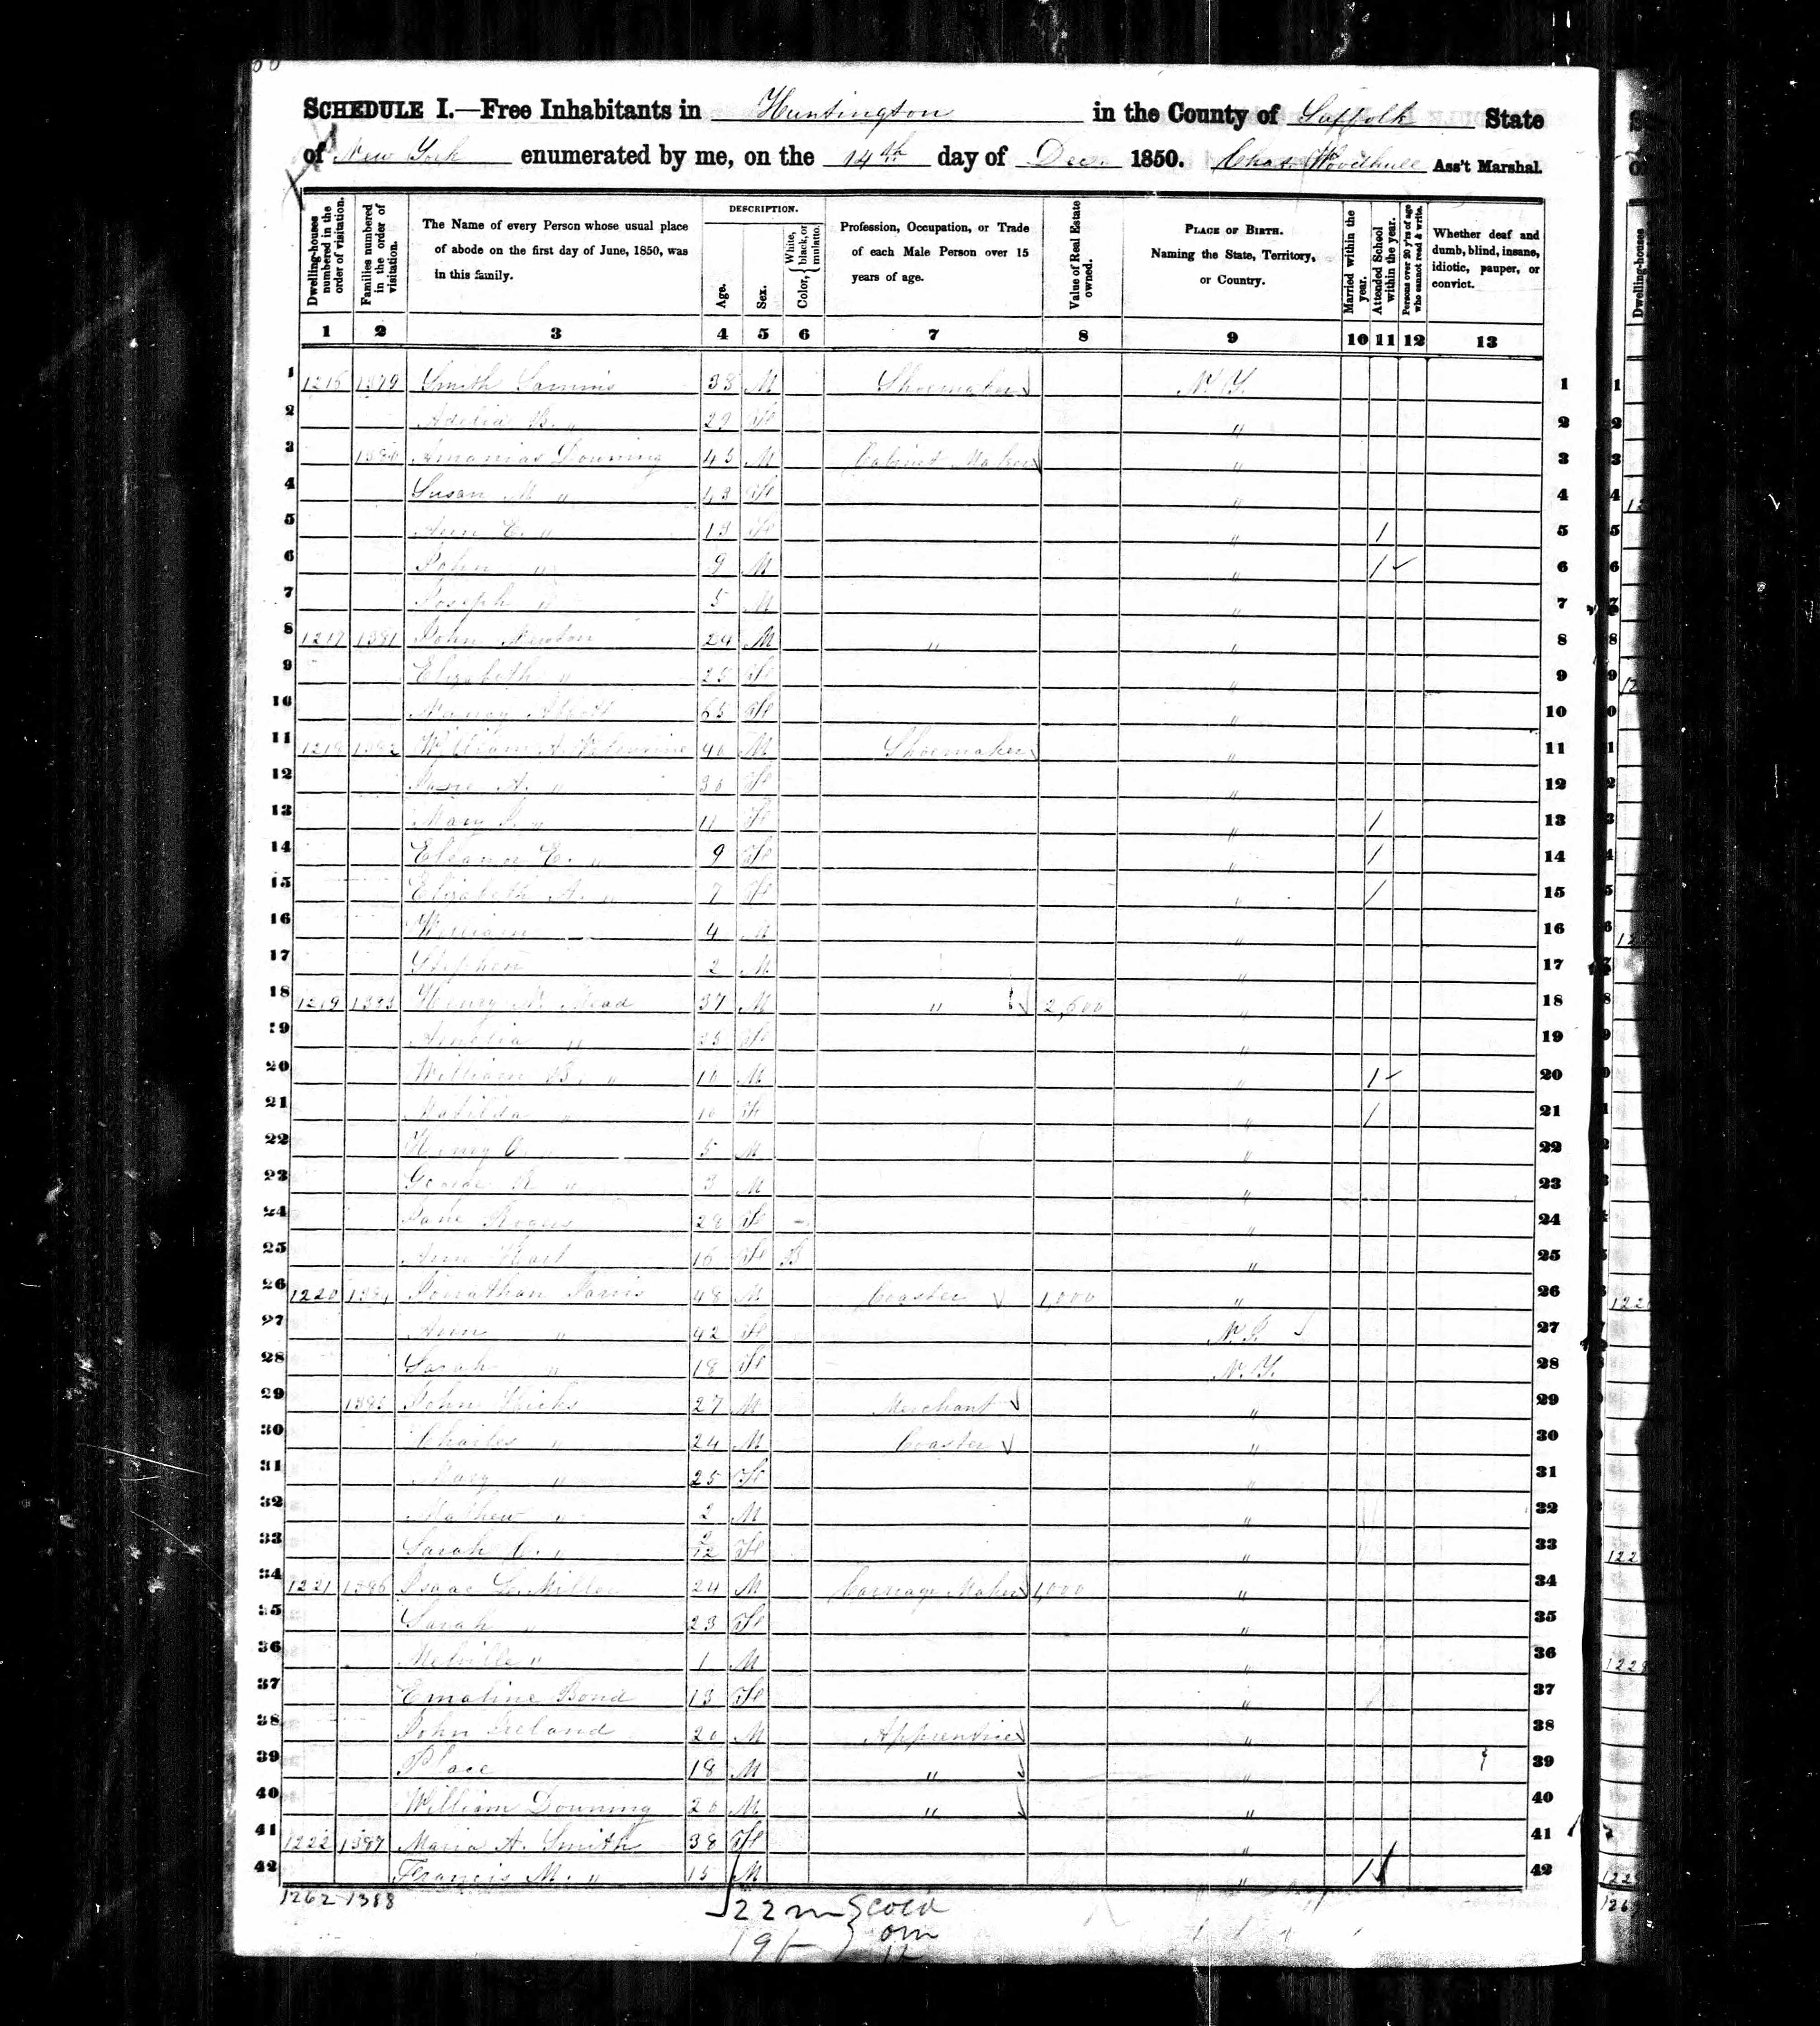 SCHEDULE I.—Free Inhabitants in Huntington in the County of Suffolk State
of New York enumerated by me, on the 14th day of Dec. 1850. Chas. Woodhull Ass't Marshal.
Dwelling-houses numbered in the order of visitation. Families numbered in the order of visitation. The Name of every Person whose usual place of abode on the first day of June, 1850, was in this family. DESCRIPTION. Age. Sex. Color, { White, black, or mulatto. Profession, Occupation, or Trade of each Male Person over 15 years of age. Value of Real Estate owned. PLACE OF BIRTH. Naming the State, Territory, or Country. Married within the year. Attended School within the year. Persons over 20 y'rs of age who cannot read & write. Whether deaf and dumb, blind, insane, idiotic, pauper, or convict.
1 2 3 4 5 6 7 8 9 10 11 12 13
1 1216 1379 Smith Sammis 38 M Shoemaker N.Y. 1
2 Adelia B. " 29 F " 2
3 1380 Ananias Downing 45 M Cabinet Maker " 3
4 Susan M " 43 F " 4
5 Ann E. " 13 F " 1 5
6 John " 9 M " 1 6
7 Joseph " 5 M " 7
8 1217 1381 John Newton 24 M " " 8
9 Elizabeth " 25 F " 9
10 Nancy 65 F " 10
11 1218 1382 William A. Valentine 40 M Shoemaker " 11
12 Jane A. " 30 F " 12
13 Mary J. " 11 F " 1 13
14 Eleanor E. " 9 F " 1 14
15 Elizabeth A. " 7 F " 1 15
16 William 4 M " 16
17 Stephen 2 M " 17
18 1219 1383 Henry N. Mead 37 M " 2,500 " 18
19 Amelia " 35 F " 19
20 William B. " M " 1 20
21 Matilda " 10 F " 1 21
22 Henry O. 5 M " 22
23 George R " 3 M " 23
24 Jane Rogers 28 F – " 24
25 Ann Hart 16 F B " 25
26 1220 1384 Jonathan Jarvis 48 M Coaster 1,000 " 26
27 Ann " 42 F N.J. 27
28 Sarah " 18 F N.Y. 28
29 1385 John Hicks 27 M Merchant " 29
30 Charles " 24 M Coaster " 30
31 Mary " 25 F " 31
32 Mathew " 2 M " 32
33 Sarah C. " 2/12 F " 33
34 1221 1386 Isaac L. Miller 24 M Carriage Maker 1,000 " 34
35 Sarah " 23 F " 35
36 Melville " 1 M " 36
37 Emaline Bond 13 F " 37
38 John Ireland 20 M Apprentice " 38
39 Place 18 M " " 39
40 William Downing 20 M " " 40
41 1222 1387 Maria A. Smith 38 F " 41
42 Francis M. " 15 M " 1 42
1262 1388
22 m
19 f